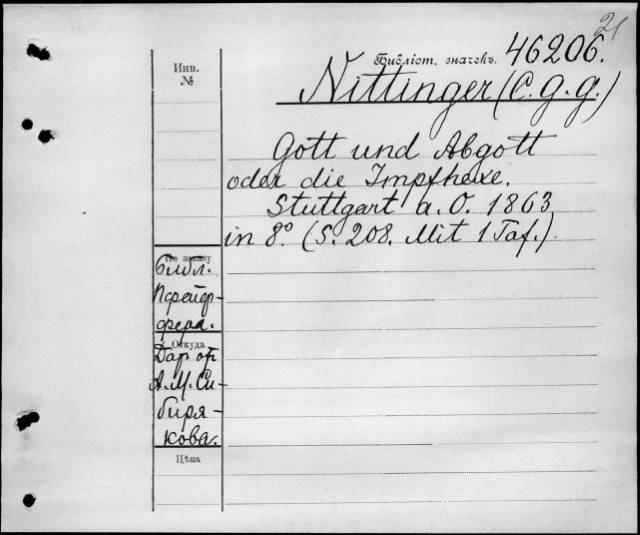 21
Библіот. значекъ. 46206.
Инв.
№
Nittinger (C. G. G.)
Gott und Abgott
oder die Impfhexe.
Stuttgart a. O. 1863
in 8° (S. 208. Mit 1 Taf.).
По заказу
библ.
Пфейф-
фера.
Откуда
Дар от
А. М. Си-
биря-
кова.
Цѣна